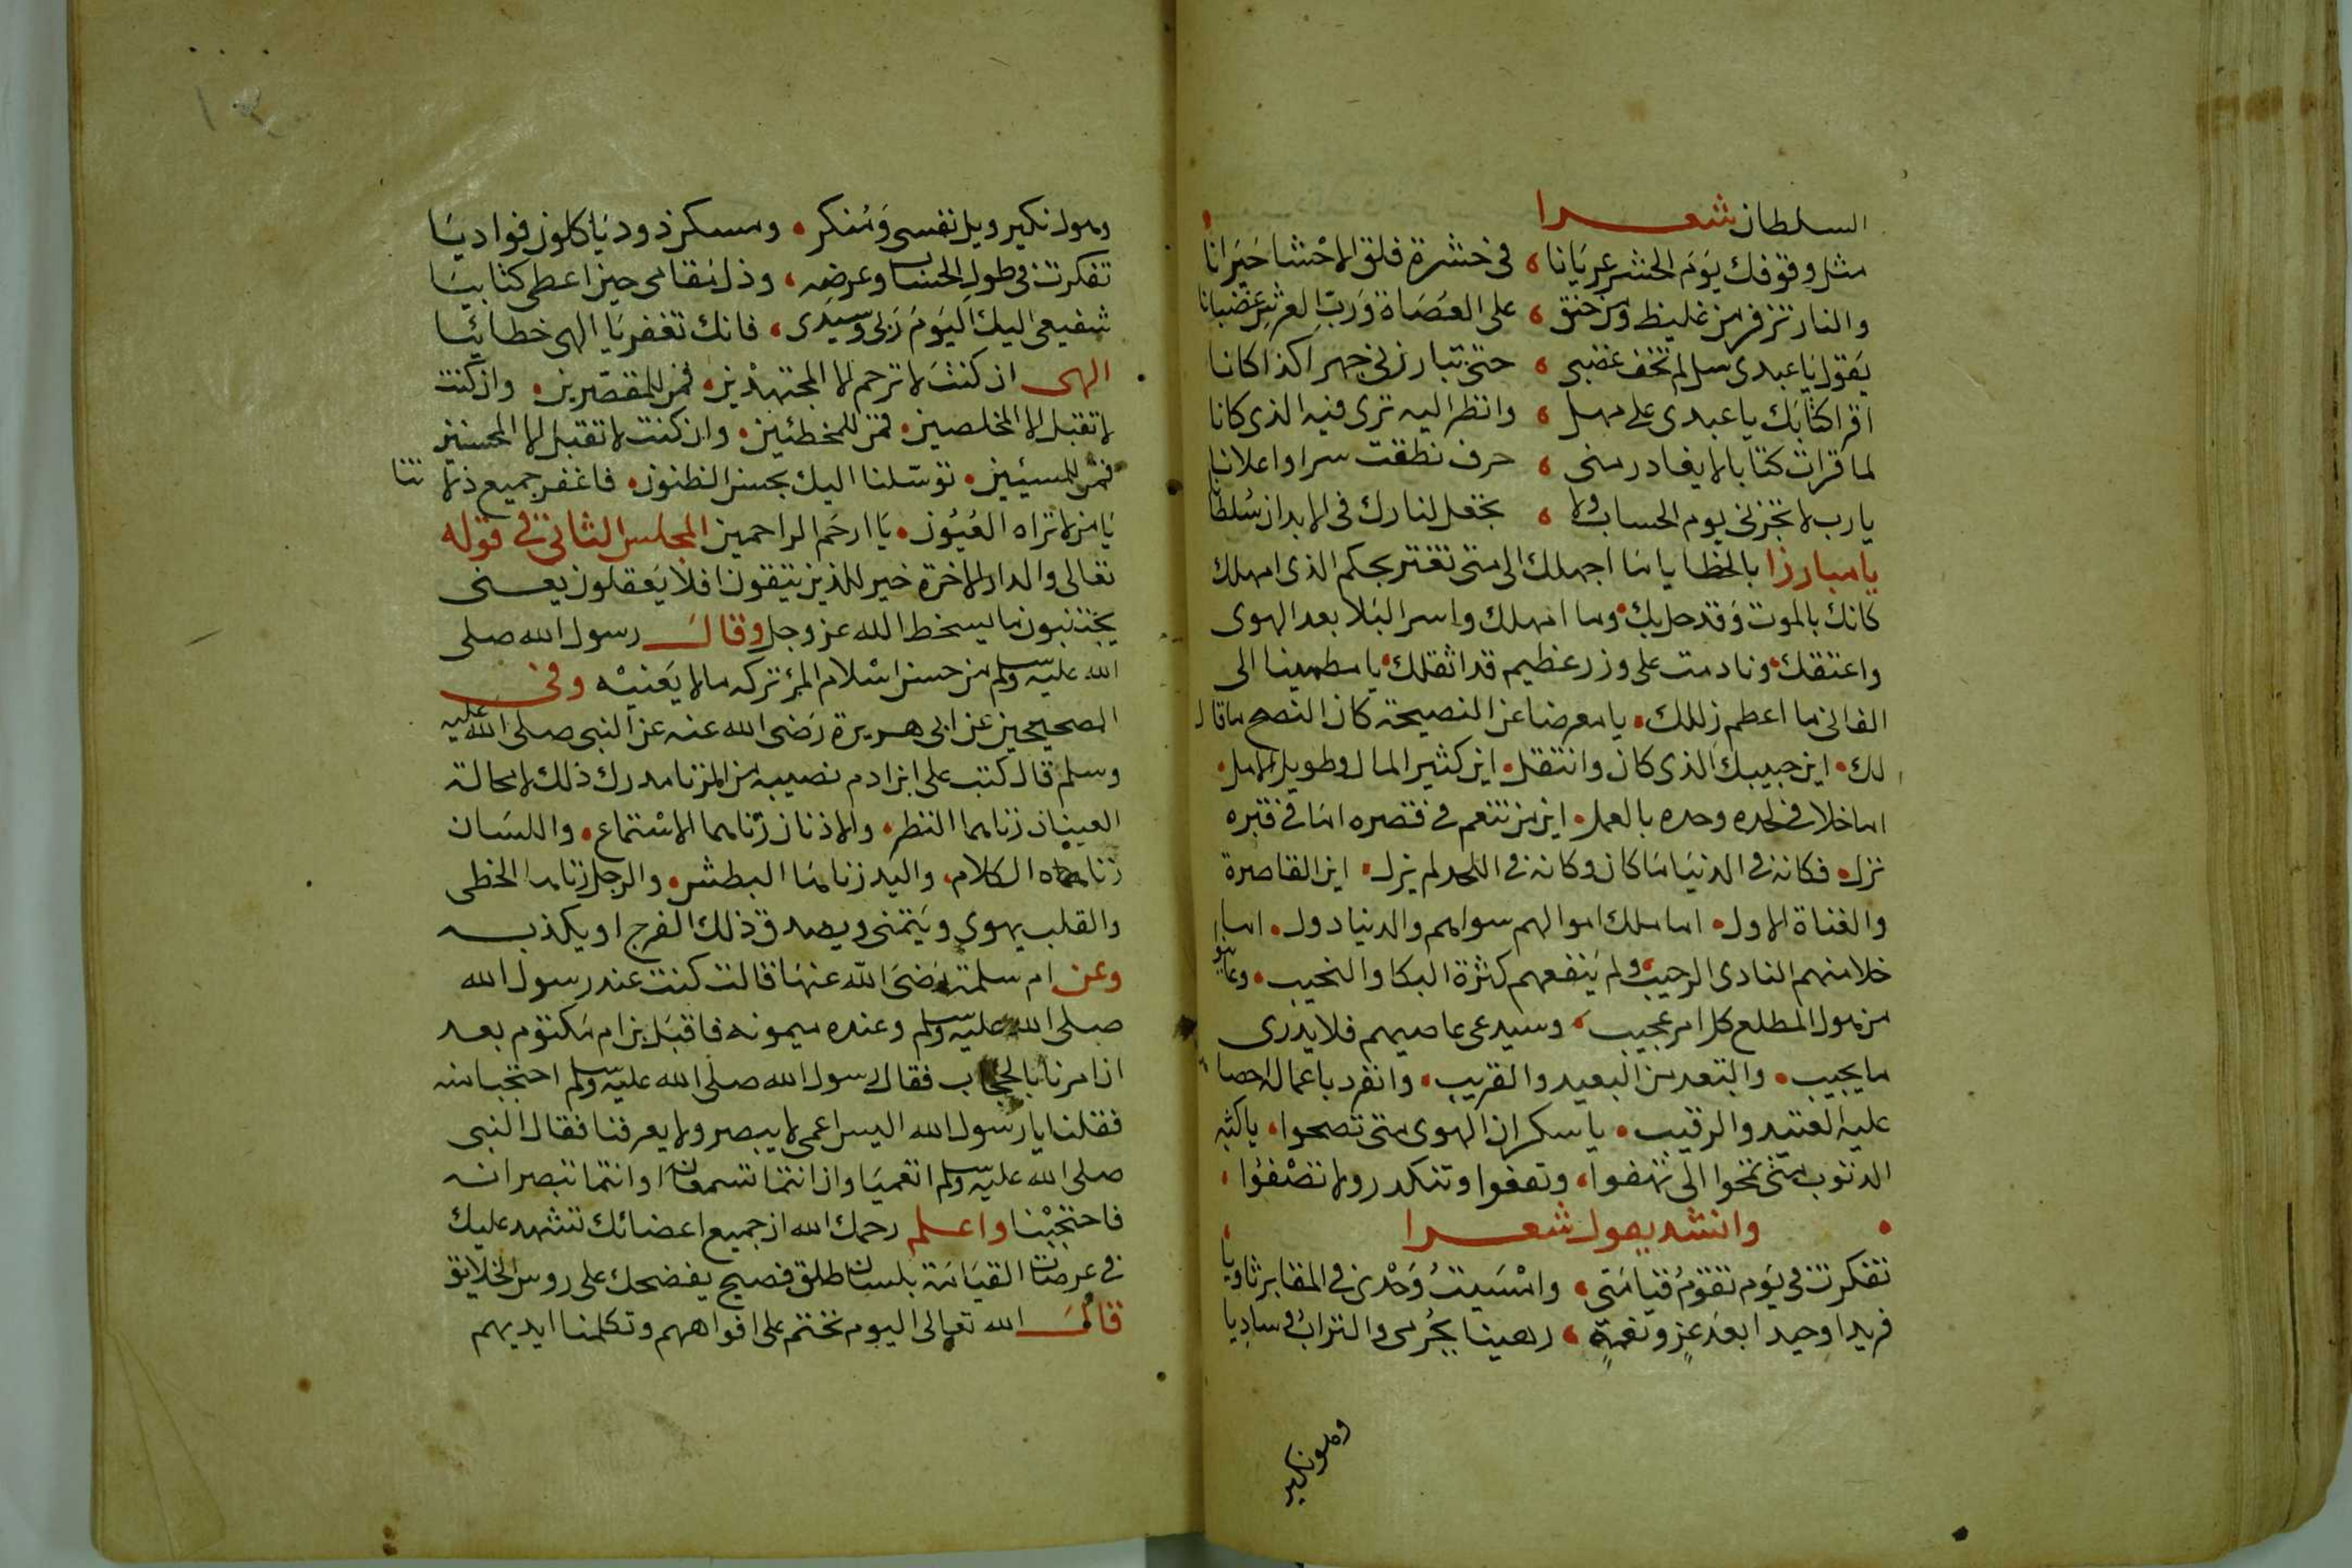 السلطان شعرا
مثل وقوفك يوم الحشر عريانا، في حشرة قلق الاحشا حيرانا
والنار تزفر من غليظ ومن حنق، على العصاة ورب العرش غضبانا
يقول يا عبدى لم تخف غضبى، حتى تبارزنى جهرا كذا كانا
اقرا كتابك يا عبدى على مهل، وانظر اليه ترى فيه الذى كانا
لما قرات كتابا لا يغادر منى، حرف نطقت سرا واعلانا
يا رب لا تخزنى يوم الحساب ولا، تجعل لنارك فى الابدان سلطانا
يا مبارزا بالخطايا ما اجهلك الى متى تغتر بحكم الذى امهلك
كانك بالموت وقد حل بك، وما امهلك واسر البلا بعد الهوى
واعتقك، ونادمت على وزر عظيم قد اثقلك، يا مطمينا الى
الفانى ما اعظم زللك، يا معرضا عن النصيحة كان النصح ما قال
لك، اين حبيبك الذى كان وانتقل، اين كثير المال وطويل الامل،
اما خلا فى لحده وحده بالعمل، اين من تنعم فى قصره اما فى قبره
نزل، فكانه فى الدنيا ما كان وكانه فى اللحد لم يزل، اين القاصرة
والفناة الاول، اما ملك اموالهم سواهم والدنيا دول، اما
خلا منهم النادى الرحيب، ولم ينفعهم كثرة البكا والنحيب، وعاينوا
من هول المطلع كل امر عجيب، وسيدعى عاصيهم فلا يدرى
ما يجيب، والتعد من البعيد والقريب، وانفرد باعماله احصاه
عليه العتيد والرقيب، يا سكران الهوى متى تصحوا، يا كثير
الذنوب متى تمحوا الى تهفوا، وتغفوا وتتكدر ولا تصفوا،
وانشد يقول شعرا
تفكرت فى يوم تقوم قيامتى، وامسيت وحدى فى المقابر ثاويا
فريدا وحيدا بعد عز ونعمة، رهينا بجرمى والتراب وساديا
وهول نكير
وهول نكير ويل نفسى ومنكر، ومسكن ذود ياكلون فواديا
تفكرت فى طول الحساب وعرضه، وذل مقامى حين اعطى كتابيا
شفيعى اليك اليوم ربى وسيدى، فانك تغفر يا الهى خطائيا
الهى ان كنت لا ترحم الا المجتهدين، فمن للمقصرين، وان كنت
لا تقبل الا المخلصين، فمن للمخطئين، وان كنت لا تقبل الا المحسنين
فمن للمسيئين، توسلنا اليك بحسن الظنون، فاغفر جميع ذلا تنا
يا من لا تراه العيون، يا ارحم الراحمين المجلس الثانى فى قوله
تعالى والدار الاخرة خير للذين يتقون افلا يعقلون يعنى
يجتنبون ما يسخط الله عز وجل وقال رسول الله صلى
الله عليه وسلم من حسن اسلام المرء تركه ما لا يعنيه وفى
الصحيحين عن ابى هريرة رضى الله عنه عن النبى صلى الله عليه
وسلم قال كتب على ابن ادم نصيبه من الزنا مدرك ذلك لا محالة
العينان زناهما النظر، والاذنان زناهما الاستماع، واللسان
زناه الكلام، واليد زناها البطش، والرجل زناها الخطى
والقلب يهوى ويتمنى ويصدق ذلك الفرج او يكذبه
وعن ام سلمة رضى الله عنها قالت كنت عند رسول الله
صلى الله عليه وسلم وعنده ميمونه فاقبل بن ام مكتوم بعد
ان امرنا بالحجاب فقال رسول الله صلى الله عليه وسلم احتجبا منه
فقلنا يا رسول الله اليس اعمى لا يبصر ولا يعرفنا فقال النبى
صلى الله عليه وسلم انعميا وان انتما تسمعان او انتما تبصرانه
فاحتجبنا واعلم رحمك الله ان جميع اعضائك تشهد عليك
فى عرصات القيامة بلسان طلق فصيح يفضحك على روس الخلايق
قال الله تعالى اليوم نختم على افواههم وتكلمنا ايديهم